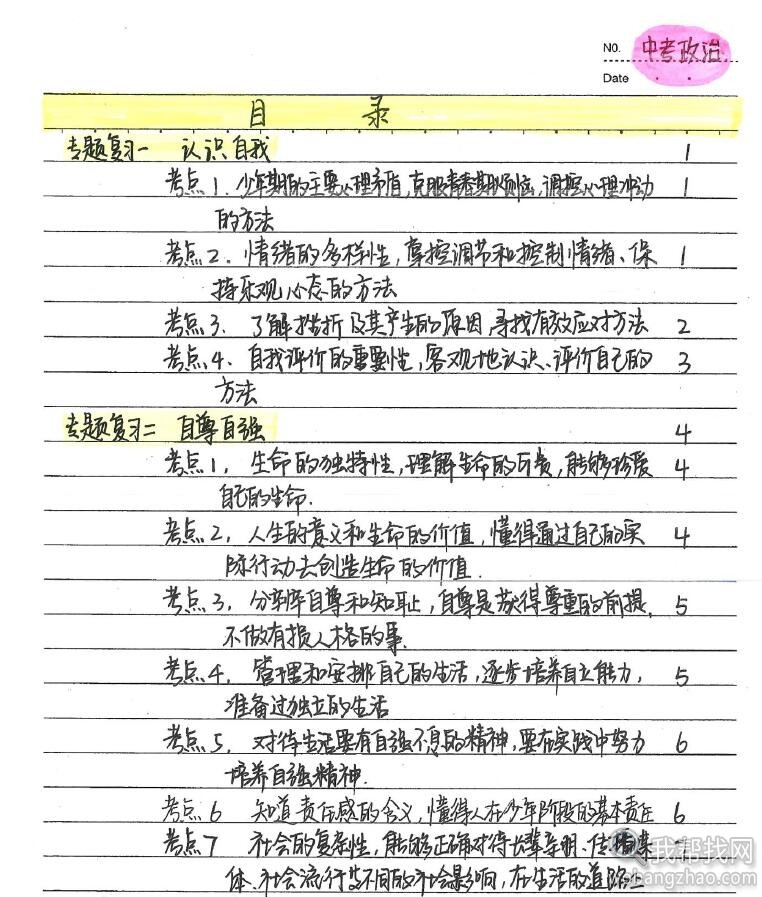 NO. 中考政治
Date
目 录
专题复习一 认识自我 1
考点1. 少年期的主要心理矛盾,克服青春期烦恼,调控心理冲动 1
的方法
考点2. 情绪的多样性,掌控调节和控制情绪、保 1
持乐观心态的方法
考点3. 了解挫折及其产生的原因,寻找有效应对方法 2
考点4. 自我评价的重要性,客观地认识、评价自己的 3
方法
专题复习二 自尊自强 4
考点1, 生命的独特性,理解生命的可贵,能够珍爱 4
自己的生命.
考点2, 人生的意义和生命的价值,懂得通过自己的实 4
际行动去创造生命的价值.
考点3, 分辨自尊和知耻,自尊是获得尊重的前提, 5
不做有损人格的事.
考点4, 管理和安排自己的生活,逐步培养自立能力, 5
准备过独立的生活
考点5, 对待生活要有自强不息的精神,要在实践中努力 6
培养自强精神.
考点6 知道责任感的含义,懂得人在少年阶段的基本责任 6
考点7 社会的复杂性,能够正确对待长辈亲朋、传媒
体、社会流行 不同的社会影响,在生活的道路上
我帮找网
wobangzhao.com